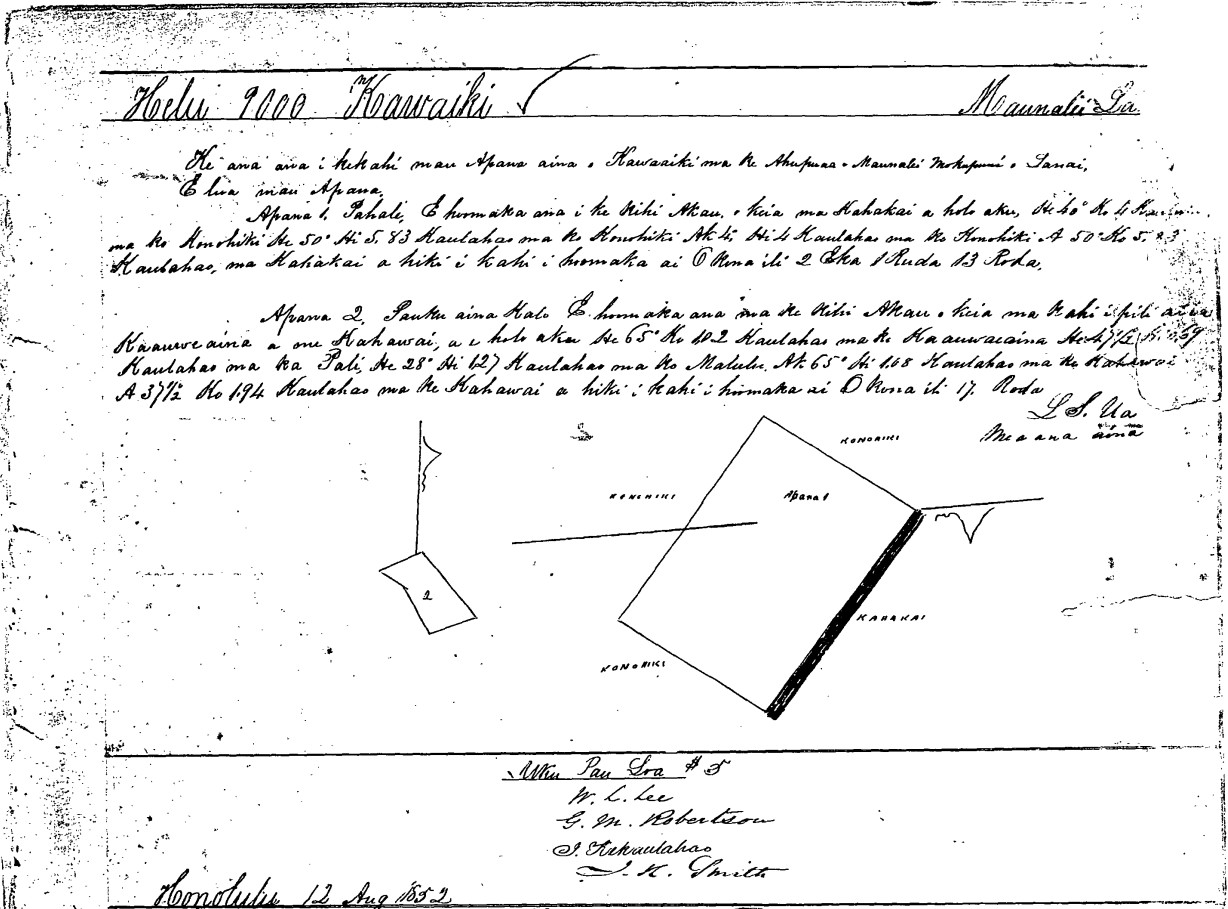 Helu 9000 Kawaiki Maunalei La
Ke ana ana i kekahi mau Apana aina o Kawaaiki ma ke Ahupuaa o Maunalei Mokupuni o Lanai,
E lua mau Apana,
Apana 1. Pahale, E hoomaka ana i ke Kihi Akau, o keia ma Kahakai a holo aku, He 40° Ko 4
ma ko Konohiki He 50° Hi 5.83 Kaulahao ma ko Konohiki Ak 4 Hi 4 Kaulahao ma ko Konohiki A 50° Ko 5.
Kaulahao, ma Kahakai a hiki i kahi i hoomaka ai O kona ili 2 Eka 1 Ruda 13 Roda,
Apana 2, Pauku aina Kalo E hoomaka ana ma ke Kihi Akau o keia ma kahi i pili ai
Kaauwe aina a me Kahawai, a e holo aku He 65° Ko Kaulahao ma ke Kaauwaeaina
Kaulahao ma ka Pali, He 28° Hi 1.27 Kaulahao ma ko Malulu, Ak 65° Hi 1.08 Kaulahao ma ke Kahawai
A 37½ Ko 1.94 Kaulahao ma ke Kahawai a hiki i kahi i hoomaka ai O kona ili 17. Roda
L S. Ua
Mea ana aina
KONOHIKI
KONOHIKI
Apana 1
2
KAHAKAI
KONOHIKI
Uku Pau Loa # 5
W. L. Lee
G. M. Robertson
J. Kekaulahao
J. K. Smith
Honolulu 12 Aug 1852